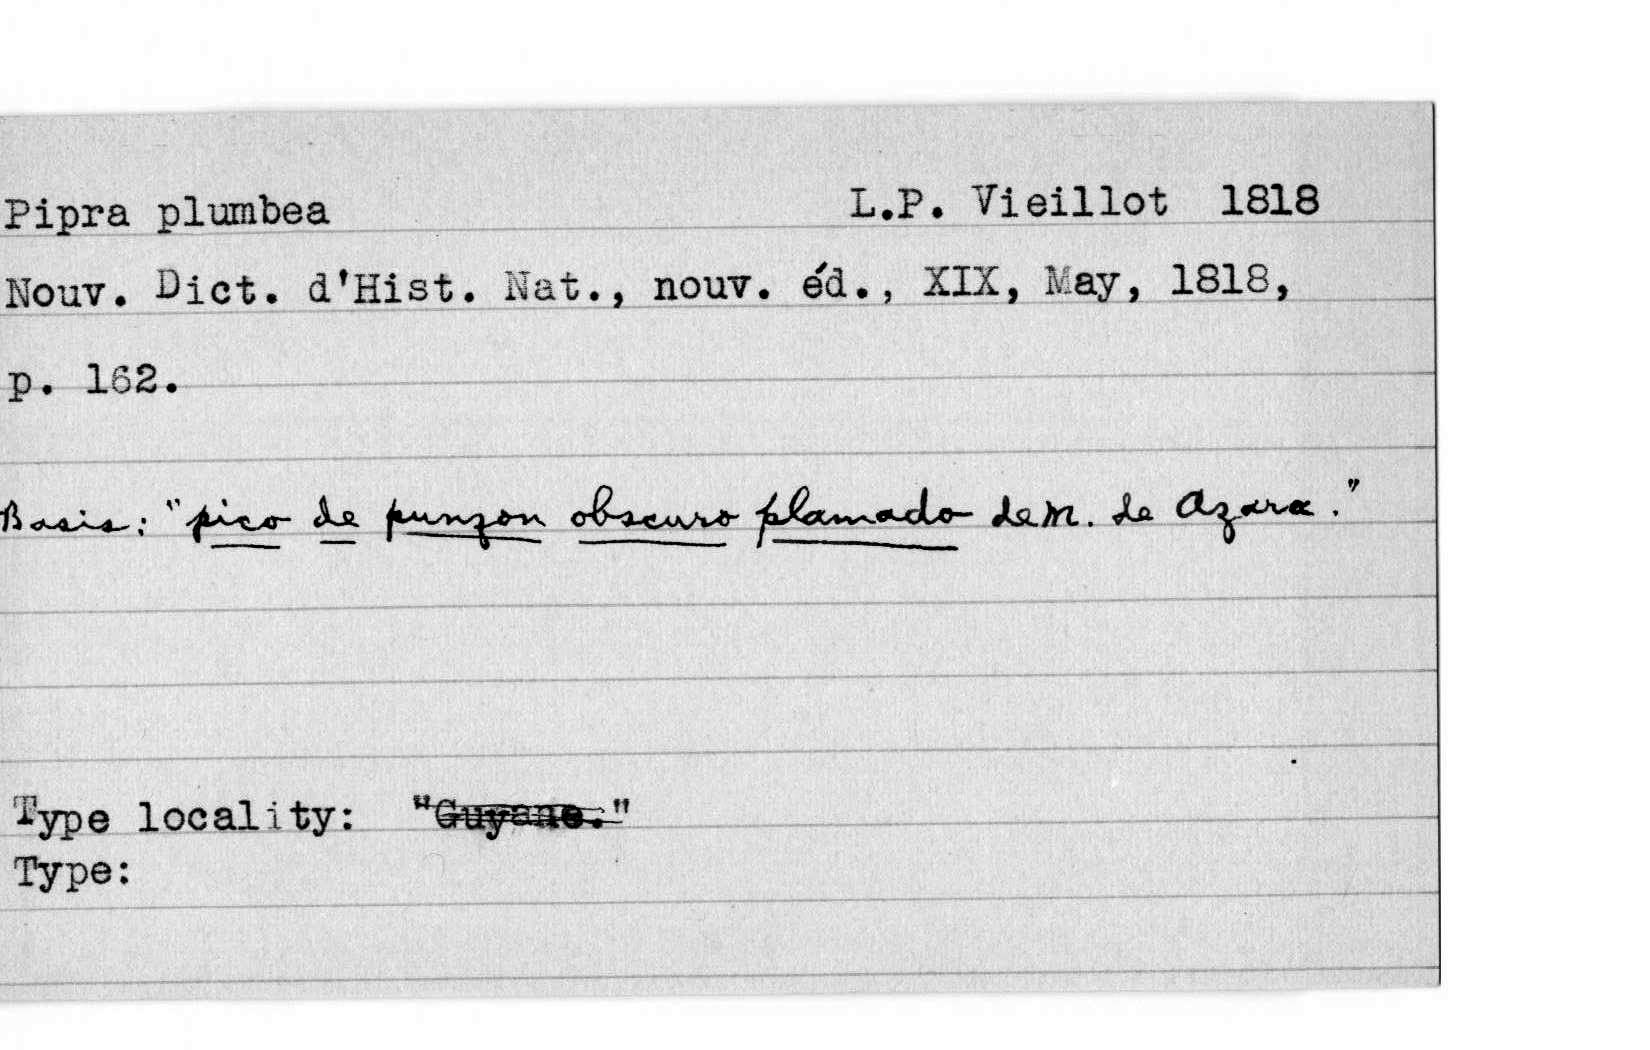 Pipra plumbea L.P. Vieillot 1818
Nouv. Dict. d'Hist. Nat., nouv. éd., XIX, May, 1818,
p. 162.
Basis: "pico de punzon obscuro plamado de M. de Azara."
Type locality: "Guyane."
Type: